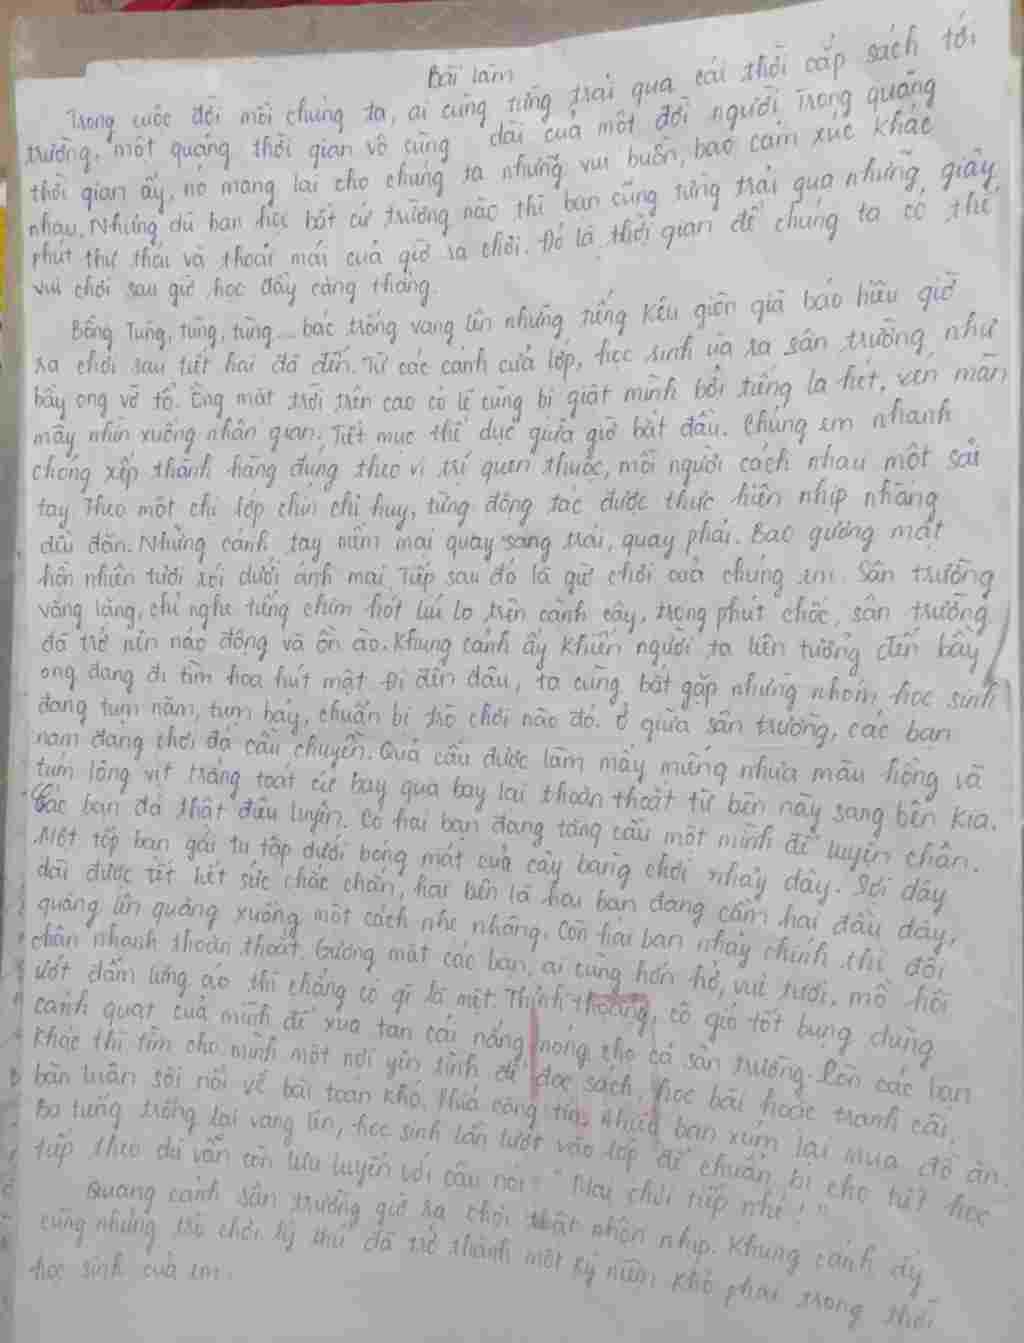 Bài làm
Trong cuộc đời mỗi chúng ta, ai cũng từng trải qua cái thời cắp sách tới
trường, một quãng thời gian vô cùng dài của một đời người. Trong quãng
thời gian ấy, nó mang lại cho chúng ta những vui buồn, bao cảm xúc khác
nhau. Nhưng dù bạn học bất cứ trường nào thì bạn cũng từng trải qua những giây
phút thư thái và thoải mái của giờ ra chơi. Đó là thời gian để chúng ta có thể
vui chơi sau giờ học đầy căng thẳng.
Bỗng Tùng, tùng, tùng... bác trống vang lên những tiếng kêu giòn giã báo hiệu giờ
ra chơi sau tiết hai đã đến. Từ các cánh cửa lớp, học sinh ùa ra sân trường như
bầy ong vỡ tổ. Ông mặt trời trên cao có lẽ cũng bị giật mình bởi tiếng la hét, vén màn
mây nhìn xuống nhân gian. Tiết mục thể dục giữa giờ bắt đầu. Chúng em nhanh
chóng xếp thành hàng đứng theo vị trí quen thuộc, mỗi người cách nhau một sải
tay. Theo một chị lớp chín chỉ huy, từng động tác được thực hiện nhịp nhàng
đều đặn. Những cánh tay mềm mại quay sang trái, quay phải. Bao gương mặt
hồn nhiên tươi rói dưới ánh mai. Tiếp sau đó là giờ chơi của chúng em. Sân trường
vắng lặng, chỉ nghe tiếng chim hót líu lo trên cành cây, trong phút chốc, sân trường
đã trở nên náo động và ồn ào. Khung cảnh ấy khiến người ta liên tưởng đến bầy
ong đang đi tìm hoa hút mật. Đi đến đâu, ta cũng bắt gặp những nhóm học sinh
đang tụm năm, tụm bảy, chuẩn bị trò chơi nào đó. Ở giữa sân trường, các bạn
nam đang chơi đá cầu chuyền. Quả cầu được làm mấy miếng nhựa màu hồng và
túm lông vịt trắng toát cứ bay qua bay lại thoăn thoắt từ bên này sang bên kia.
Các bạn đá thật điêu luyện. Có hai bạn đang tâng cầu một mình để luyện chân.
Một tốp bạn gái tụ tập dưới bóng mát của cây bàng chơi nhảy dây. Sợi dây
dài được tết hết sức chắc chắn, hai bên là hai bạn đang cầm hai đầu dây,
quăng lên quăng xuống một cách nhẹ nhàng. Còn hai bạn nhảy chính thì đôi
chân nhanh thoăn thoắt. Gương mặt các bạn, ai cũng hớn hở, vui tươi, mồ hôi
ướt đẫm lưng áo thì chẳng có gì là mệt. Thỉnh thoảng, cô gió tốt bụng dùng
cánh quạt của mình để xua tan cái nắng nóng cho cả sân trường. Còn các bạn
khác thì tìm cho mình một nơi yên tĩnh để đọc sách, học bài hoặc tranh cãi,
bàn luận sôi nổi về bài toán khó. Phía công tin, nhiều bạn xúm lại mua đồ ăn.
Ba tiếng trống lại vang lên, học sinh lần lượt vào lớp để chuẩn bị cho tiết học
tiếp theo dù vẫn còn lưu luyến với câu nói: "Mai chơi tiếp nhé!"
Quang cảnh sân trường giờ ra chơi thật nhộn nhịp. Khung cảnh ấy
cùng những trò chơi lý thú đã trở thành một kỷ niệm khó phai trong thời
học sinh của em.